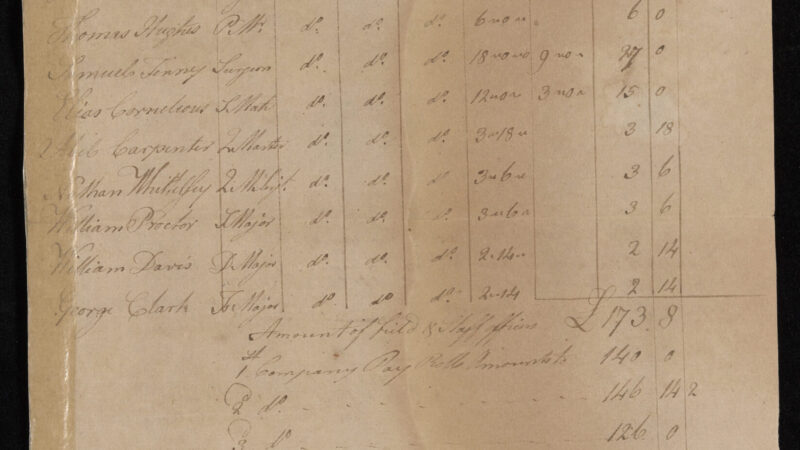 Thomas Hughes P. Mr. do. do. do. 6 " 0 " 0 6 0
Samuel Tenney Surgeon do. do. do. 18 " 0 " 0 9 " 0 " 27 0
Elias Cornelious S. Mate do. do. do. 12 " 0 " 0 3 " 0 " 15 0
Carpenter Qr Master do. do. do. 3 " 18 " 3 18
Nathan Whitelsey do. do. do. 3 " 6 " 3 6
William Proctor S. Major do. do. do. 3 " 6 " 3 6
William Davis D. Major do. do. do. 2 " 14 " 2 14
George Clark Major do do do. 2 " 14 2 14
Amount of field & Staff £173 8
1st Company Pay Rolls Amounts to 140 0
2 do. 146 14 2
3 do 126 0